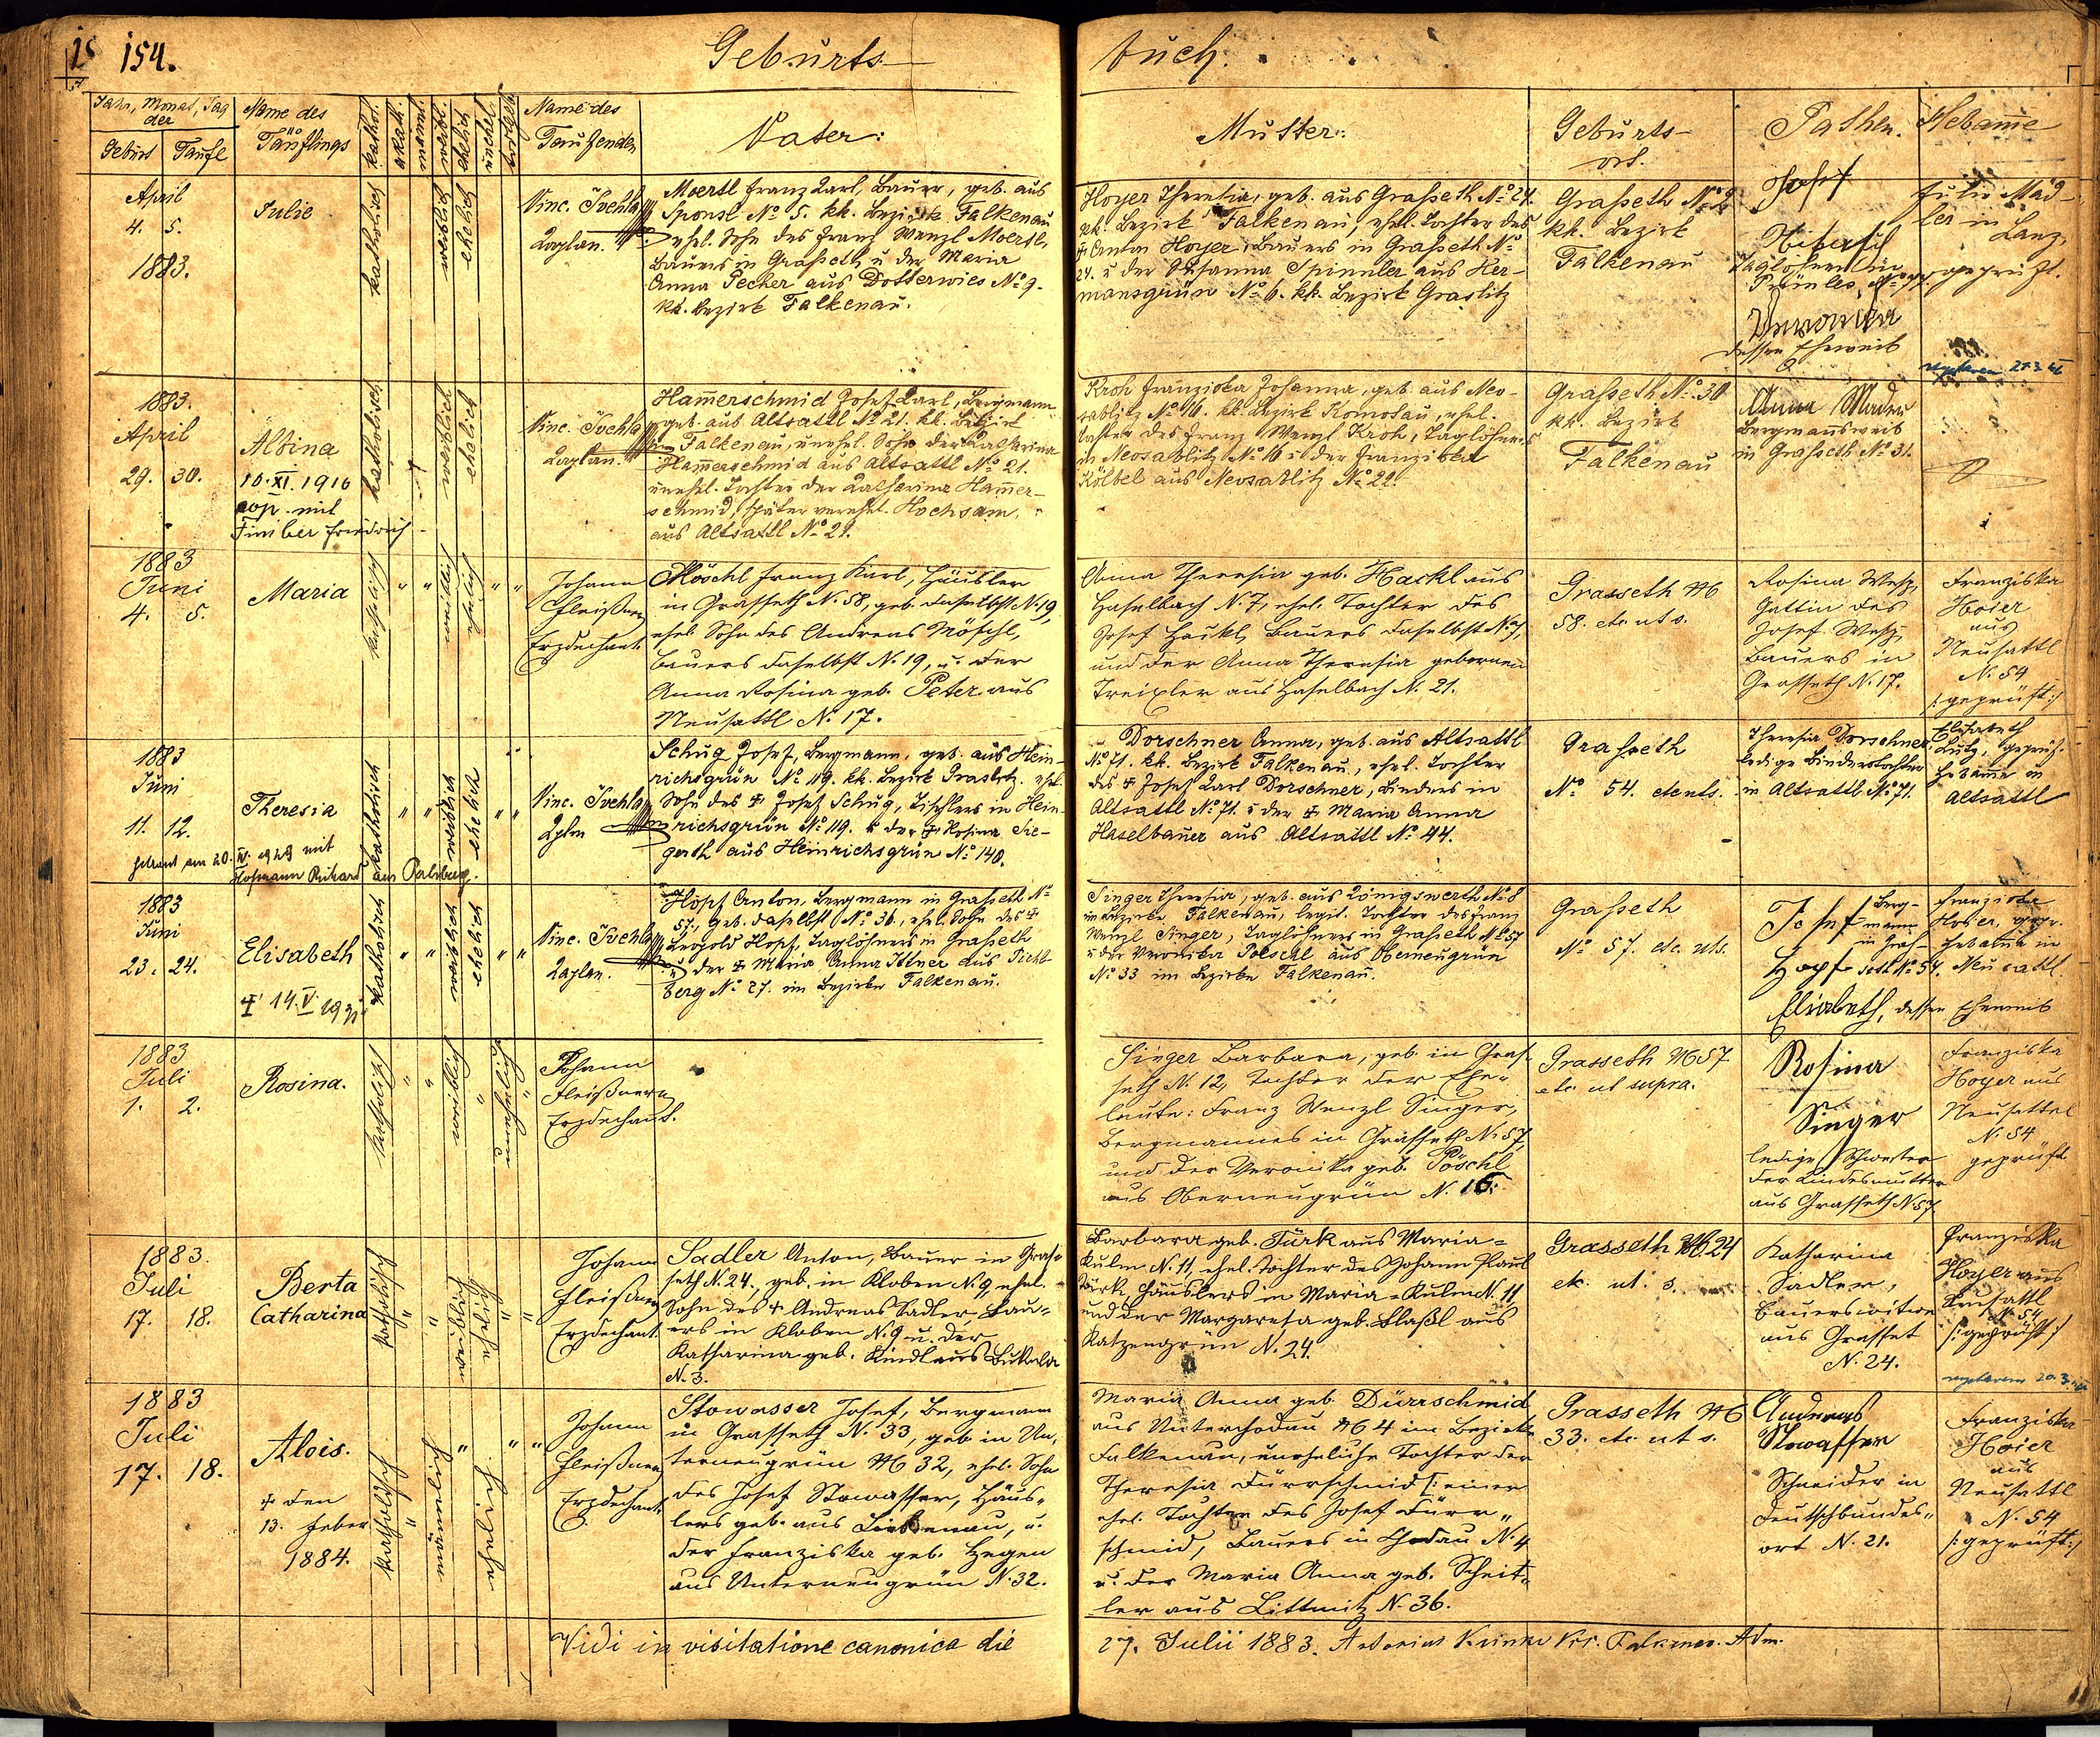 154.
Geburts-
buch.
Jahr, Monat, Tag
der
Geburt Taufe
Name des
Täuflings
kathol.
akath.
männl.
weibl.
ehelich
unehel.
Name des
Taufenden
Vater:
Mutter:
Geburts-
ort.
Pathen.
Hebamme
April
4. 5.
1883.
Julie
katholisch
weiblich
ehelich
Vinc. Švehla
Kaplan.
Moertl Franz Karl, Bauer, geb. aus
Sponsl No 5. kk. Bezirk Falkenau
ehel. Sohn des Franz Wenzl Moertl,
Bauers in Graßeth u der Maria
Anna Pecher aus Dotterwies No 9.
kk. Bezirk Falkenau.
Hoyer Theresia, geb. aus Graßeth No 24.
kk. Bezirk Falkenau, ehel. Tochter des
Anton Hoyer, Bauers in Graßeth No
24. u der Susanna Spinnler aus Her-
mansgrün No 6. kk. Bezirk Graslitz
Graßeth No
kk. Bezirk
Falkenau
Josef
Taglöhner in
Veronika
dessen Eheweib
Julie Mäd-
ler in
Lanz,
geprüft.
1883.
April
29. 30.
Albina
10. XI. 1916
cop. mit
Friedrich
katholisch
weiblich
ehelich
Vinc. Švehla
Kaplan.
Hammerschmid Josef Karl, Bergmann
geb. aus Altsattl No 21. kk. Bezirk
Falkenau, unehel. Sohn der Katharina
Hammerschmid aus Altsattl No 21.
unehel. Tochter der Katharina Hammer-
schmid, später verehel. Hochsam.
aus Altsattl No 21.
Kroh Franziska Johanna, geb. aus Neo-
sablitz No 16. kk. Bezirk Komotau, ehel.
Tochter des Franz Wenzl Kroh, Taglöhners
in Neosablitz No 16 u der Franziska
Kölbel aus Neosablitz No 22.
Graßeth No 30
kk. Bezirk
Falkenau
Anna Mader
Bergmannsweib
in Graßeth No 31.
1883
Juni
4. 5.
Maria
katholisch
weiblich
ehelich
Johann
Fleißner
Erzdechant.
Möschl Franz Karl, Häusler
in Grasseth N. 58, geb. daselbst N. 19,
ehel. Sohn des Andreas Möschl,
Bauers daselbst N. 19, u. der
Anna Rosina geb. Peter aus
Neusattl N. 17.
Anna Theresia geb. Hackl aus
Haselbach N. 7, ehel. Tochter des
Josef Hackl, Bauers daselbst N. 7,
und der Anna Theresia gebornen
Treixler aus Haselbach N. 21.
Grasseth No
58. etc. ut s.
Rosina
Gattin des
Josef
Bauers in
Grasseth N. 17.
Franziska
Hoier
aus
Neusattl
N. 54
/:geprüft:/
1883
Juni
11. 12.
Theresia
Getraut am 20. mit
Hofmann Richard aus
katholisch
weiblich
ehelich
Vinc. Švehla
Kpln
Schug Josef, Bergmann, geb. aus Hein-
richsgrün No 119. kk. Bezirk Graslitz. ehel.
Sohn des Josef Schug, Tischlers in Hein-
richsgrün No 119. u der Rosina Sie-
gerth aus Heinrichsgrün No 140.
Dorschner Anna, geb. aus Altsattl
No 71. kk. Bezirk Falkenau, ehel. Tochter
des Josef Karl Dorschner, Binders in
Altsattl No 71. u der Maria Anna
Haselbauer aus Altsattl No 44.
Graßeth
No 54. etc uts.
Theresia Dorschner
ledige Binderstochter
in Altsattl No 71.
Elisabeth
Lutz, geprüf.
Hebamme in
Altsattl
1883
Juni
23. 24.
Elisabeth
14. V.
katholisch
weiblich
ehelich
Vinc. Švehla
Kaplan.
Hopf Anton, Bergmann in Graßeth No
57., geb. daselbst No 36, ehel. Sohn des
Leopold Hopf, Taglöhners in Graßeth
u der Maria Anna Ittner aus Pichl-
berg No 27. im Bezirke Falkenau.
Singer Theresia, geb. aus Königswerth No 8
im Bezirke Falkenau, legit. Tochter des Franz
Wenzl Singer, Taglöhners in Graßeth No 57
u der Veronika Poeschl aus Oberneugrün
No 33 im Bezirke Falkenau.
Graßeth
No 57. etc. uts.
Josef Berg-
mann
in Gras-
Hopf seth No 54.
Elisabeth, dessen Eheweib
Franziska
Hoier, gepr.
Hebamme in
Neusattl.
1883
Juli
1. 2.
Rosina.
katholisch
weiblich
unehelich
Johann
Fleißner
Erzdechant.
Singer Barbara, geb. in Gras-
seth N. 12, Tochter der Ehe-
leute: Franz Wenzl Singer,
Bergmannes in Grasseth N. 57,
und der Veronika geb. Pöschl
aus Oberneugrün N. 16.
Grasseth No 57
etc. ut supra.
Rosina
Singer
ledige Schwester
der Kindesmutter
aus Grasseth N. 57
Franziska
Hoyer aus
Neusattel
N. 54
geprüft
1883.
Juli
17. 18.
Berta
Catharina
katholisch
weiblich
ehelich
Johann
Fleißner
Erzdechant.
Sadler Anton, Bauer in Gras-
seth N. 24., geb. in Kloben N. 9, ehel.
Sohn des Andreas Sadler, Bau-
ers in Kloben N. 9 u. der
Katharina geb. Kindl aus
N. 3.
Barbara geb. Türk aus Maria-
Kulm N. 11, ehel. Tochter des Johann Paul
Türk, Häuslers in Maria-Kulm N. 11
und der Margareta geb. aus
Katzengrün N. 24.
Grasseth No 24
etc. ut. s.
Katharina
Sadler,
Bauerswitwe
aus Grasset
N. 24.
Franziska
Hoyer aus
Neusattl
N. 54
/:geprüft:/
1883
Juli
17. 18.
Alois.
den
13. Feber
1884.
katholisch
männlich
ehelich
Johann
Fleißner
Erzdechant.
Stowasser Josef, Bergmann
in Grasseth N. 33, geb. in Un-
terneugrün No 32, ehel. Sohn
des Josef Stowasser, Häus-
lers geb. aus Liebenau, u.
der Franziska geb. Hegen
aus Unterneugrün N. 32.
Maria Anna geb. Dürrschmid
aus Unterchodau No 4 im Bezirke
Falkenau, uneheliche Tochter der
Theresia Dürrschmid /:einer
ehel. Tochter des Josef Dürr-
schmid, Bauers in Chodau N. 4
u. der Maria Anna geb. Scheit-
ler aus Littmitz N. 36.
Grasseth No
33. etc. ut s.
Andreas
Stowasser
Schneider in
N. 21.
Franziska
Hoier
aus
Neusattl
N. 54
/:geprüft:/
Vidi in visitatione canonica die
27. Julii 1883.